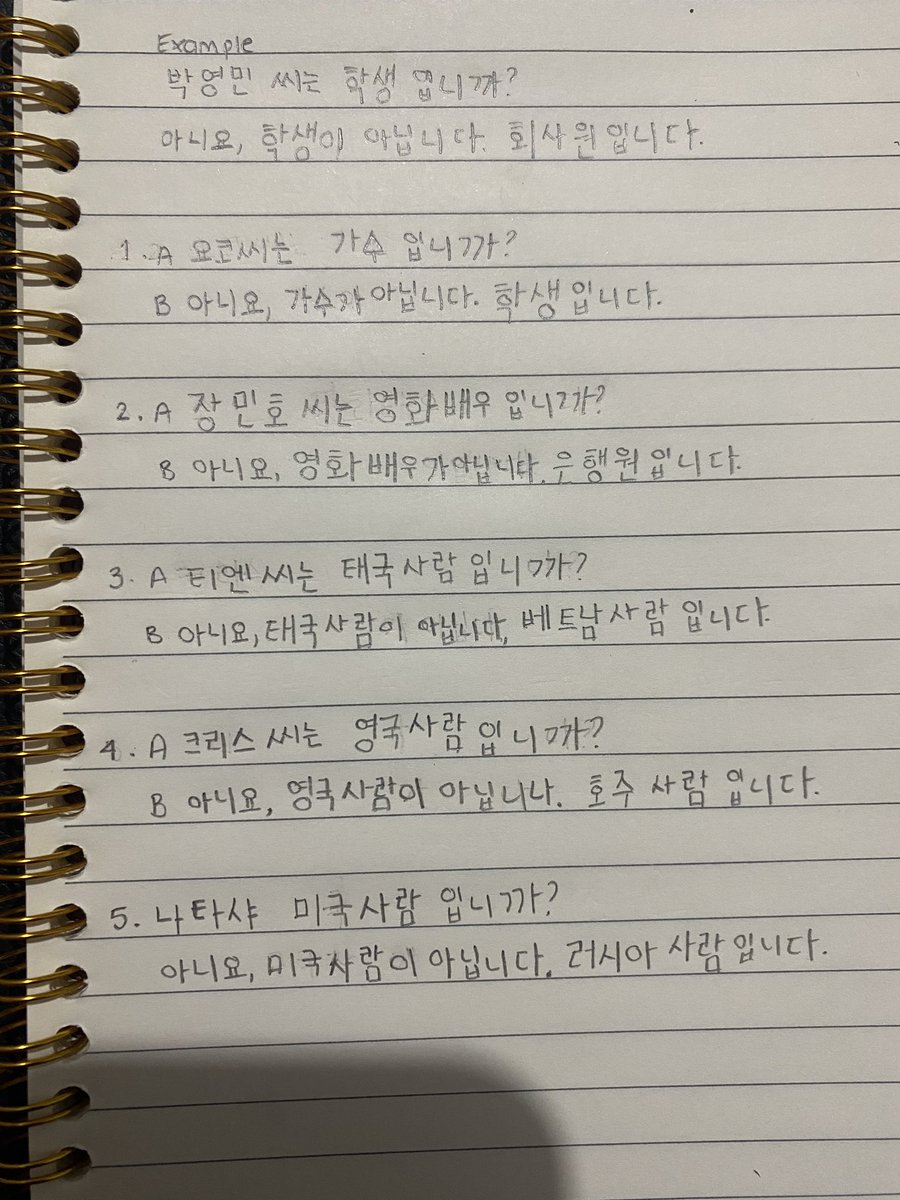 Example
박영민 씨는 학생 입니까?
아니요, 학생이 아닙니다. 회사원입니다.
1. A 요코씨는 가수 입니까?
B 아니요, 가수가 아닙니다. 학생입니다.
2. A 장민호 씨는 영화배우 입니까?
B 아니요, 영화배우가아닙니다. 은행원입니다.
3. A 티엔씨는 태국사람 입니까?
B 아니요, 태국사람이 아닙니다, 베트남사람 입니다.
4. A 크리스씨는 영국사람 입니까?
B 아니요, 영국사람이 아닙니나. 호주 사람 입니다.
5. 나타샤 미국사람 입니까?
아니요, 미국사람이 아닙니다. 러시아 사람입니다.